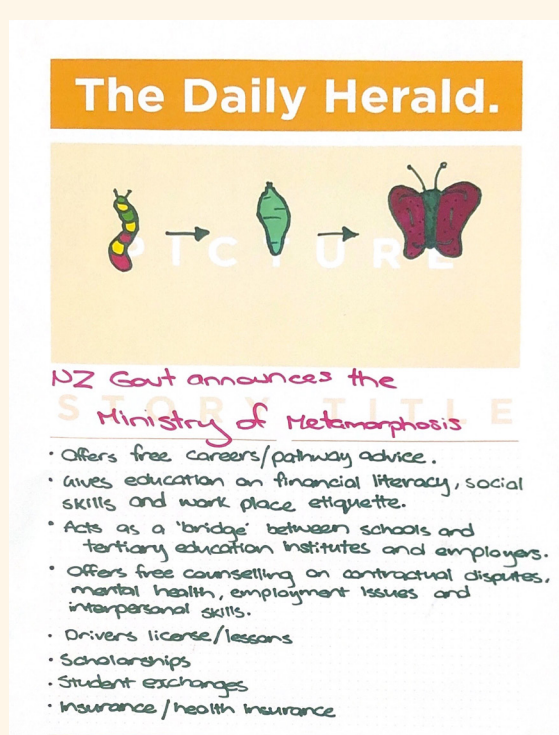 The Daily Herald.
PICTURE
NZ Govt announces the
STORY TITLE
Ministry of Metamorphosis
• Offers free careers/pathway advice.
• Gives education on financial literacy, social
skills and work place etiquette.
• Acts as a 'bridge' between schools and
tertiary education institutes and employers.
• Offers free counselling on contractual disputes,
mental health, employment issues and
interpersonal skills.
• Drivers license/lessons
• Scholarships
• Student exchanges
• Insurance/health insurance